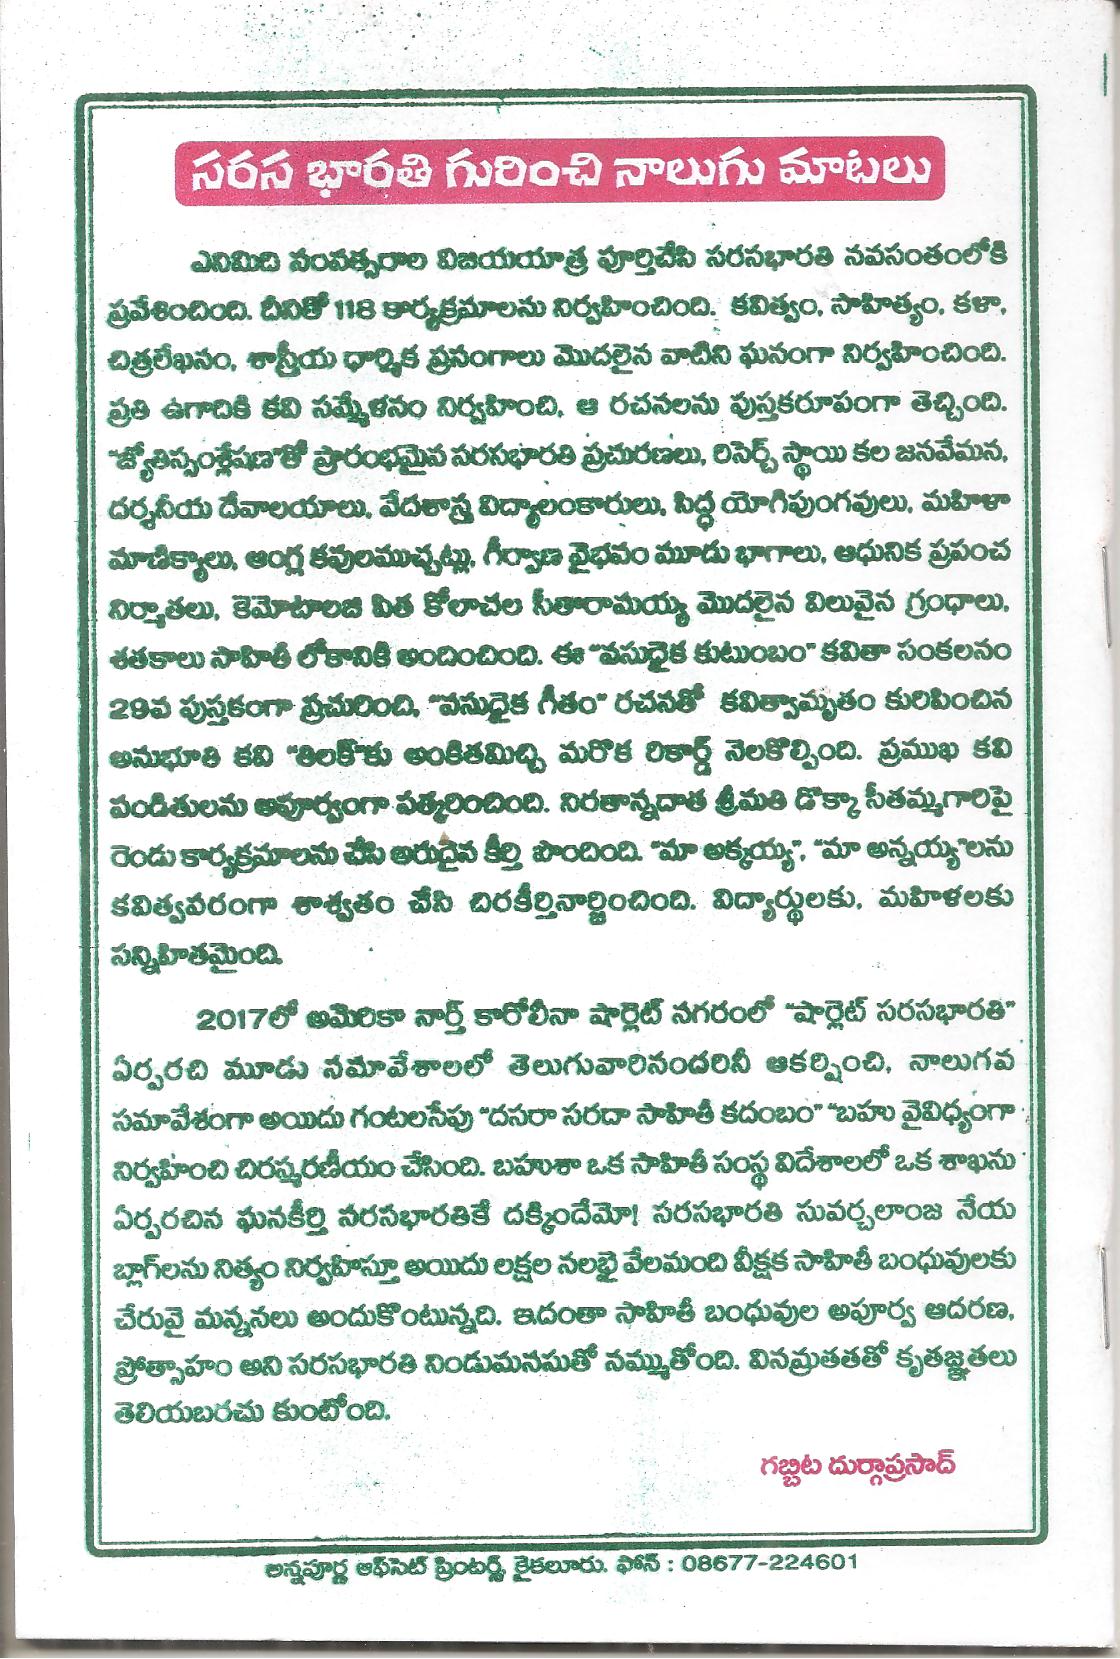 సరస భారతి గురించి నాలుగు మాటలు
ఎనిమిది సంవత్సరాల విజయయాత్ర పూర్తిచేసి సరసభారతి నవసంతంలోకి
ప్రవేశించింది. దీనితో 118 కార్యక్రమాలను నిర్వహించింది. కవిత్వం, సాహిత్యం, కళా,
చిత్రలేఖనం, శాస్త్రీయ ధార్మిక ప్రసంగాలు మొదలైన వాటిని ఘనంగా నిర్వహించింది.
ప్రతి ఉగాదికి కవి సమ్మేళనం నిర్వహించి, ఆ రచనలను పుస్తకరూపంగా తెచ్చింది.
"జ్యోతిస్సంశ్లేషణ"తో ప్రారంభమైన సరసభారతి ప్రచురణలు, రిసెర్చ్ స్థాయి కల జనవేమన,
దర్శనీయ దేవాలయాలు, వేదశాస్త్ర విద్యాలంకారులు, సిద్ధ యోగిపుంగవులు, మహిళా
మాణిక్యాలు, ఆంగ్ల కవులముచ్చట్లు, గీర్వాణ వైభవం మూడు భాగాలు, ఆధునిక ప్రపంచ
నిర్మాతలు, కెమోటాలజి పిత కోలాచల సీతారామయ్య మొదలైన విలువైన గ్రంధాలు,
శతకాలు సాహితీ లోకానికి అందించింది. ఈ "వసుధైక కుటుంబం" కవితా సంకలనం
29వ పుస్తకంగా ప్రచురించి, "వసుధైక గీతం" రచనతో కవిత్వామృతం కురిపించిన
అనుభూతి కవి "తిలక్"కు అంకితమిచ్చి మరొక రికార్డ్ నెలకొల్పింది. ప్రముఖ కవి
పండితులను అపూర్వంగా సత్కరించింది. నిరతాన్నదాత శ్రీమతి డొక్కా సీతమ్మగారిపై
రెండు కార్యక్రమాలను చేసి అరుదైన కీర్తి పొందింది. "మా అక్కయ్య", "మా అన్నయ్య"లను
కవిత్వపరంగా శాశ్వతం చేసి చిరకీర్తినార్జించింది. విద్యార్థులకు, మహిళలకు
సన్నిహితమైంది.
2017లో అమెరికా నార్త్ కారోలీనా షార్లెట్ నగరంలో "షార్లెట్ సరసభారతి"
ఏర్పరచి మూడు సమావేశాలలో తెలుగువారినందరినీ ఆకర్షించి, నాలుగవ
సమావేశంగా అయిదు గంటలసేపు "దసరా సరదా సాహితీ కదంబం" "బహు వైవిధ్యంగా
నిర్వహించి చిరస్మరణీయం చేసింది. బహుశా ఒక సాహితీ సంస్థ విదేశాలలో ఒక శాఖను
ఏర్పరచిన ఘనకీర్తి సరసభారతికే దక్కిందేమో! సరసభారతి సువర్చలాంజ నేయ
బ్లాగ్‌లను నిత్యం నిర్వహిస్తూ అయిదు లక్షల నలభై వేలమంది వీక్షక సాహితీ బంధువులకు
చేరువై మన్ననలు అందుకొంటున్నది. ఇదంతా సాహితీ బంధువుల అపూర్వ ఆదరణ,
ప్రోత్సాహం అని సరసభారతి నిండుమనసుతో నమ్ముతోంది. వినమ్రతతతో కృతజ్ఞతలు
తెలియబరచు కుంటోంది.
గబ్బిట దుర్గాప్రసాద్
అన్నపూర్ణ ఆఫ్‌సెట్ ప్రింటర్స్, కైకలూరు. ఫోన్ : 08677-224601